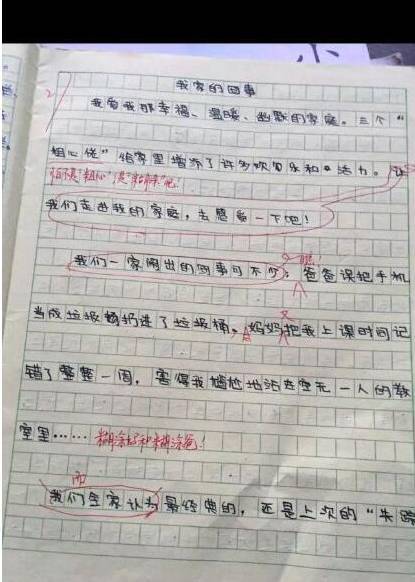 我家的囧事
我爱我那幸福、温暖、幽默的家庭。三个“
粗心佬”给家里增添了许多欢乐和活力。让
我们走进我的家庭，去感受一下吧！
瞧！
我们一家闹出的囧事可不少：爸爸误把手机
又
当成垃圾物扔进了垃圾桶，妈妈把我上课时间记
错了整整一周，害得我尴尬地站在空无一人的教
室里……糊涂妈和糊涂爸！
而
我们全家认为最经典的，还是上次的“失踪